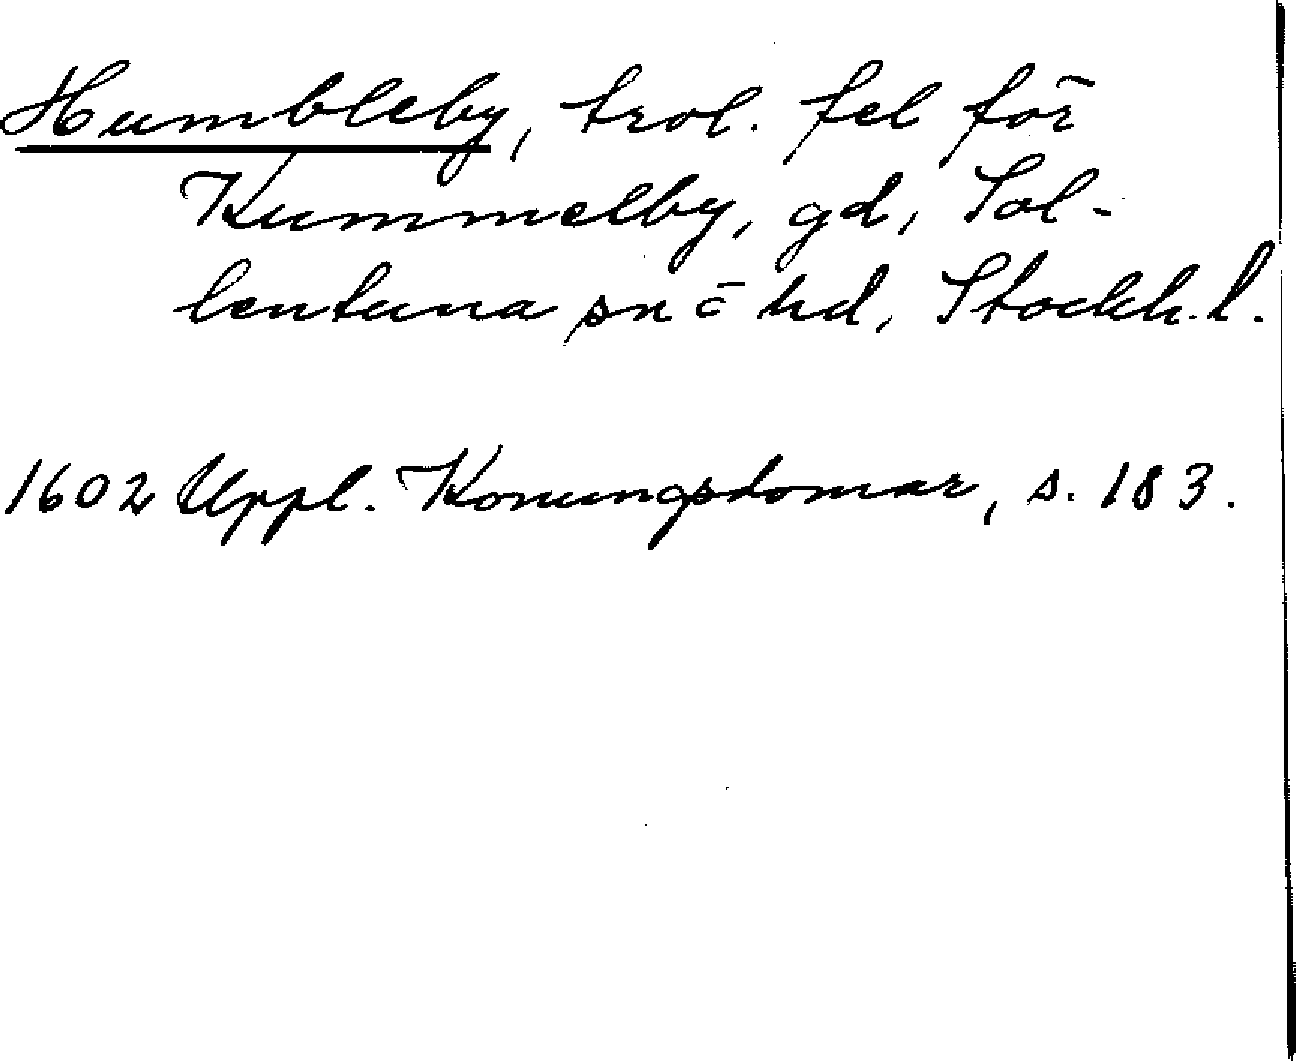 Humbleby, trol. fel för
Kummelby, gd, Sol-
lentuna sn o hd, Stockh. l.
1602 Uppl. Konungsdomar, s. 183.